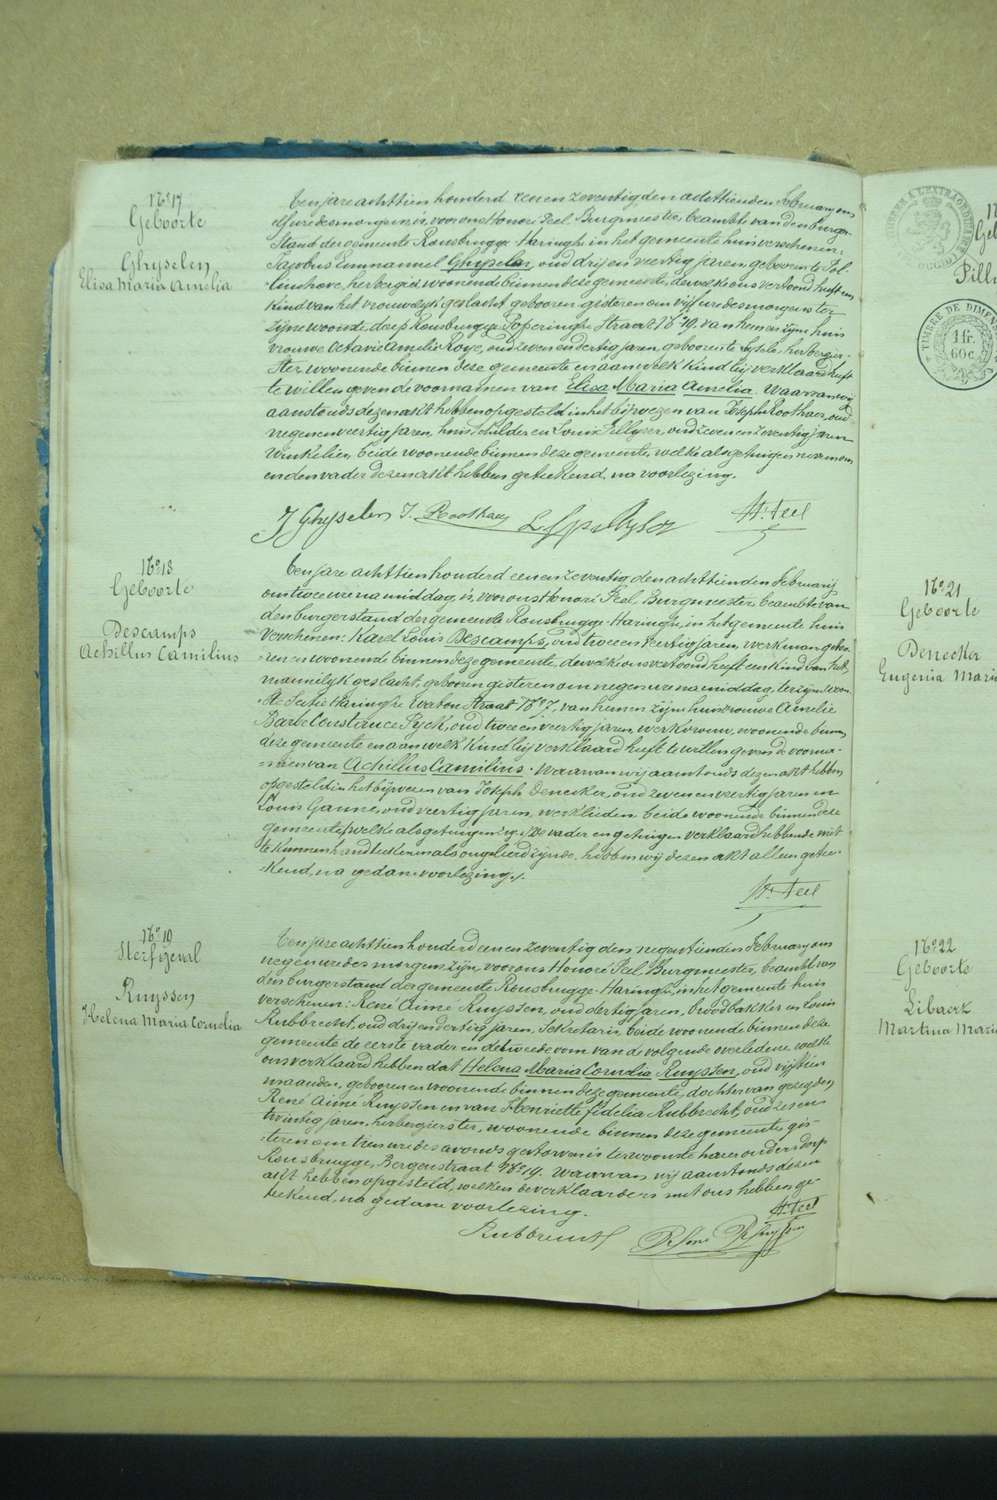 No 17
Geboorte
Ghyselen
Elisa Maria Amelia
Ten jare achttien honderd een en zeventig den achttienden February om
ure des morgens is voor ons Honoré Peel Burgmeester, beambte van den burger-
stand der gemeente Rousbrugge-Haringhe in het gemeente huis verschenen:
Jacobus Emmanuel Ghyselen, oud drij en veertig jaren geboren te Pol-
linchove, herbergier woonende binnen deze gemeente, dewelke ons vertoond heeft een
kind van het vrouwelyk geslacht, gebooren gisteren om vijf ure des morgens ter
zijne woonste, dorp Rousbrugge Poperinghe Straat No 49, van hem en zyne huis
vrouwe Octavie Amelie Roye, oud zeven en dertig jaren, gebooren te Eysele, herbergier-
ster woonende binnen deze gemeente en aan welk kind hij verklaard heeft
te willen geven de voornamen van Elisa Maria Amelia. Waarvan wij
aanstonds dezen akt hebben opgesteld in het bijwezen van Joseph Roothaer, oud
negen en veertig jaren, huisschilder en Louis oud zeven en zeventig jaren
winkelier, beide woonende binnen deze gemeente, welke als getuigen nevens ons
en den vader dezen akt hebben geteekend, na voorlezing.
J Ghyselen J. Roothaer L. Hre Peel
No 18
Geboorte
Descamps
Achillus Camilius
Ten jare achttien honderd een en zeventig, den achttienden February
om twee ure namiddag, is voor ons Honoré Peel, Burgmeester, beambte van
den burgerstand der gemeente Rousbrugge-Haringhe, in het gemeente huis
verschenen: Karel Louis Descamps, oud twee en veertig jaren, werkman gebo-
ren en woonende binnen deze gemeente, dewelke ons vertoond heeft een kind van het
mannelijk geslacht, gebooren gisteren om negen ure namiddag, ter zijne woon-
ste Sectie Haringhe Waton Straat No 7, van hem en zijne huisvrouwe Amelie
Barbe Constance Pyck, oud twee en veertig jaren, werkvrouw, woonende binnen
deze gemeente en aan welk kind hij verklaard heeft te willen geven de voorna-
men van Achillus Camilius. Waarvan wij aanstonds dezen akt hebben
opgesteld in het bijwezen van Joseph Denecker, oud zeven en veertig jaren en
Louis Ganne, oud veertig jaren, werklieden beide woonende binnen deze
gemeente, welke als getuigen De vader en getuigen verklaard hebbende niet
te kunnen handteekenen als ongeleerd zijnde, hebben wij dezen akt alleen getee-
kend, na gedane voorlezing.
Hre Peel
No 19
Sterfgeval
Ruyssen
Helena Maria Cornelia
Ten jare achttien honderd een en zeventig den negentienden February om
negen ure des morgens zijn, voor ons Honoré Peel Burgmeester, beambte van
den burgerstand der gemeente Rousbrugge-Haringhe, in het gemeente huis
verschenen: René Aimé Ruyssen, oud dertig jaren, broodbakker en Louis
Rubbrecht, oud drij en dertig jaren, Sekretaris, beide woonende binnen deze
gemeente de eerste vader en de tweede oom van de volgende overledene, welke
ons verklaard hebben dat Helena Maria Cornelia Ruyssen, oud vijftien
maanden, gebooren en woonende binnen deze gemeente, dochter van gezegden
René Aimé Ruyssen en van Henriette Fidelia Rubbrecht, oud zes en
twintig jaren, herbergierster, woonende binnen deze gemeente gis-
teren om tien ure des avonds gestorven is ter woonste harer ouders dorp
Rousbrugge, Bergenstraat No 19. Waarvan wij aanstonds dezen
akt hebben opgesteld, welken de verklaarders met ons hebben ge-
teekend, na gedane voorlezing.
Hre Peel
Rubbrecht René Ruyssen
TIMBRE DE DIMEN
1 fr.
60 c.
No 21
Geboorte
Denecker
Eugenia Maria
No 22
Geboorte
Libaert
Martina Maria